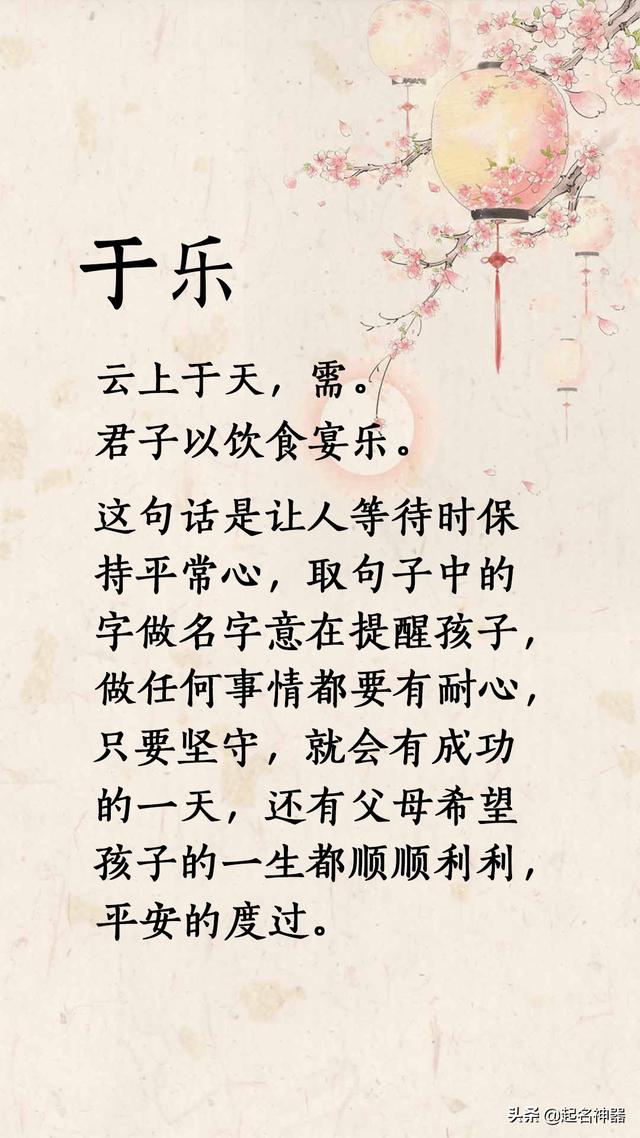 于乐
云上于天，需。
君子以饮食宴乐。
这句话是让人等待时保
持平常心，取句子中的
字做名字意在提醒孩子，
做任何事情都要有耐心，
只要坚守，就会有成功
的一天，还有父母希望
孩子的一生都顺顺利利，
平安的度过。
头条 @起名神器